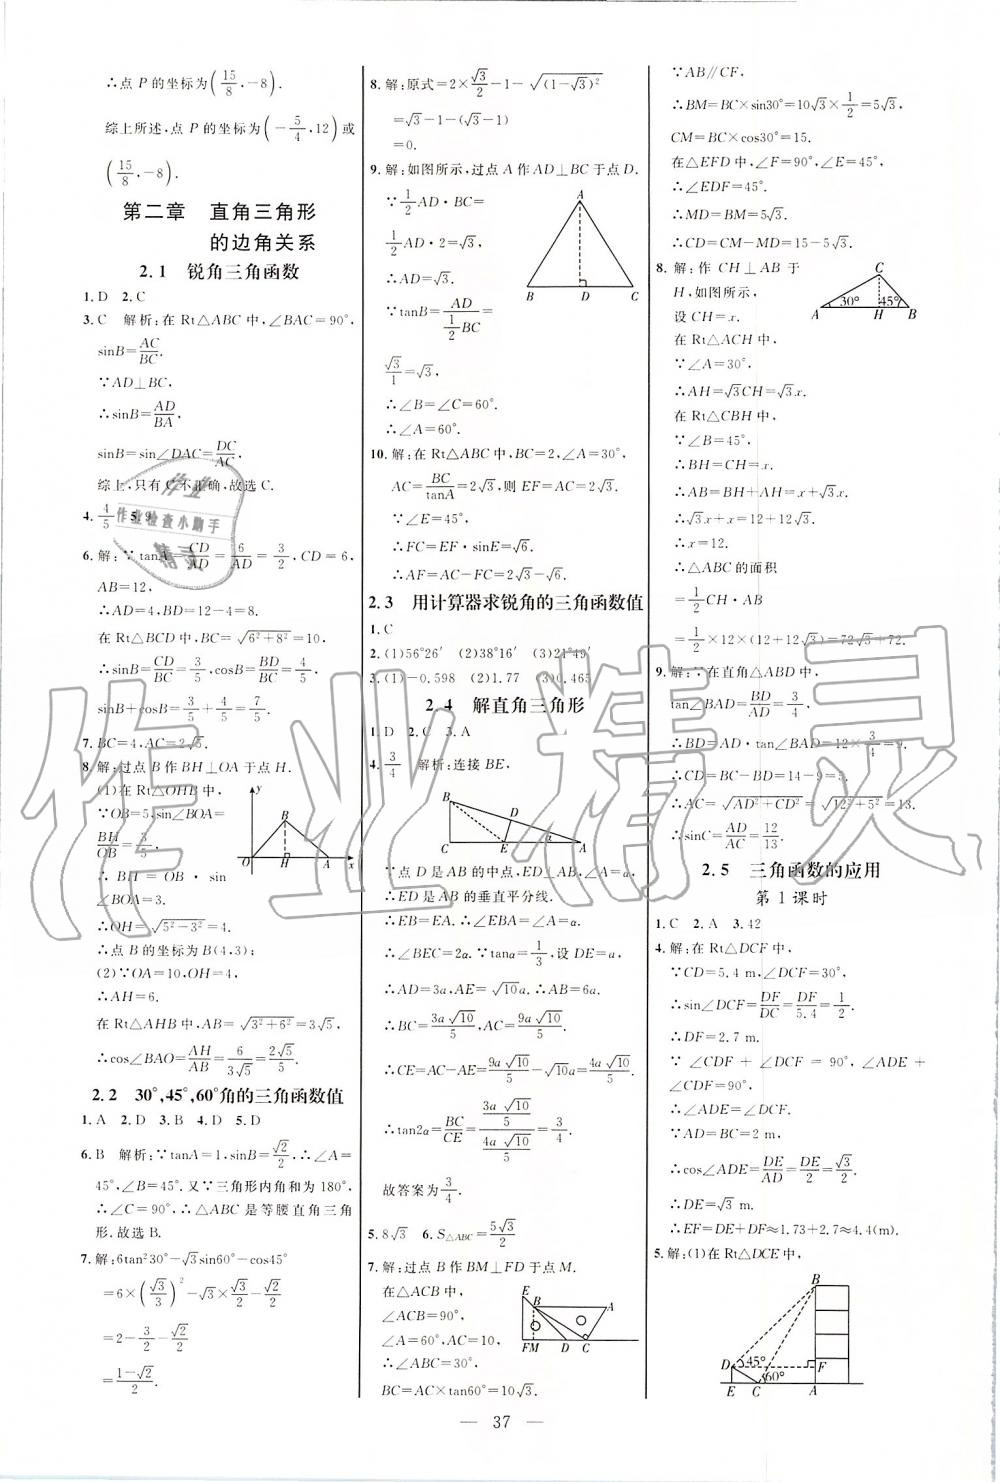 ∴点 P 的坐标为(15/8,-8).
综上所述,点 P 的坐标为(-5/4,12)或
(15/8,-8).
第二章 直角三角形
的边角关系
2.1 锐角三角函数
1. D 2. C
3. C 解析:在 Rt△ABC 中,∠BAC=90°,
sinB=AC/BC.
∵AD⊥BC,
∴sinB=AD/BA,
sinB=sin∠DAC=DC/AC.
综上,只有 C 不正确,故选 C.
4. 4/5 5. 9
6. 解:∵tanA=CD/AD=6/AD=3/2,CD=6,
AB=12,
∴AD=4,BD=12-4=8.
在 Rt△BCD 中,BC=√(6²+8²)=10,
∴sinB=CD/BC=3/5,cosB=BD/BC=4/5.
sinB+cosB=3/5+4/5=7/5.
7. BC=4,AC=2√5.
8. 解:过点 B 作 BH⊥OA 于点 H.
(1)在 Rt△OHB 中,
∵OB=5,sin∠BOA=
BH/OB=3/5,
∴BH=OB·sin
∠BOA=3.
∴OH=√(5²-3²)=4.
∴点 B 的坐标为 B(4,3);
(2)∵OA=10,OH=4,
∴AH=6.
在 Rt△AHB 中,AB=√(3²+6²)=3√5,
∴cos∠BAO=AH/AB=6/3√5=2√5/5.
y
B
O H A x
2.2 30°,45°,60°角的三角函数值
1. A 2. D 3. B 4. D 5. D
6. B 解析:∵tanA=1,sinB=√2/2,∴∠A=
45°,∠B=45°.又∵三角形内角和为180°,
∴∠C=90°,∴△ABC 是等腰直角三角
形.故选 B.
7. 解:6tan²30°-√3sin60°-cos45°
=6×(√3/3)²-√3×√3/2-√2/2
=2-3/2-√2/2
=(1-√2)/2.
8. 解:原式=2×√3/2-1-√(1-√3)²
=√3-1-(√3-1)
=0.
9. 解:如图所示,过点 A 作 AD⊥BC 于点 D.
∵1/2AD·BC=
1/2AD·2=√3,
∴AD=√3.
∵tanB=AD/(1/2BC)=
√3/1=√3,
∴∠B=∠C=60°.
∴∠A=60°.
A
B D C
10. 解:在 Rt△ABC 中,BC=2,∠A=30°,
AC=BC/tanA=2√3,则 EF=AC=2√3.
∵∠E=45°,
∴FC=EF·sinE=√6.
∴AF=AC-FC=2√3-√6.
2.3 用计算器求锐角的三角函数值
1. C
2. (1)56°26′ (2)38°16′ (3)21°49′
3. (1)-0.598 (2)1.77 (3)0.465
2.4 解直角三角形
1. D 2. C 3. A
4. 3/4 解析:连接 BE,
B
D
α
C E A
∵点 D 是 AB 的中点,ED⊥AB,∠A=α,
∴ED 是 AB 的垂直平分线.
∴EB=EA.∴∠EBA=∠A=α.
∴∠BEC=2α.∵tanα=1/3,设 DE=a,
∴AD=3a,AE=√10a.∴AB=6a.
∴BC=3a√10/5,AC=9a√10/5.
∴CE=AC-AE=9a√10/5-√10a=4a√10/5.
∴tan2α=BC/CE=(3a√10/5)/(4a√10/5)=3/4.
故答案为3/4.
5. 8√3 6. S△ABC=5√3/2
7. 解:过点 B 作 BM⊥FD 于点 M.
在△ACB 中,
∠ACB=90°,
∠A=60°,AC=10,
∴∠ABC=30°,
BC=AC×tan60°=10√3.
E
B A
FM D C
∵AB∥CF,
∴BM=BC×sin30°=10√3×1/2=5√3,
CM=BC×cos30°=15.
在△EFD 中,∠F=90°,∠E=45°,
∴∠EDF=45°.
∴MD=BM=5√3.
∴CD=CM-MD=15-5√3.
8. 解:作 CH⊥AB 于
H,如图所示,
设 CH=x.
在 Rt△ACH 中,
∵∠A=30°,
∴AH=√3CH=√3x.
在 Rt△CBH 中,
∵∠B=45°,
∴BH=CH=x.
∴AB=BH+AH=12+12√3.
∴√3x+x=12+12√3.
∴x=12.
∴△ABC 的面积
=1/2CH·AB
=1/2×12×(12+12√3)=72√3+72.
C
30° 45°
A H B
9. 解:∵在直角△ABD 中,
tan∠BAD=BD/AD=3/4,
∴BD=AD·tan∠BAD=12×3/4=9.
∴CD=BC-BD=14-9=5.
∴AC=√(AD²+CD²)=√(12²+5²)=13.
∴sinC=AD/AC=12/13.
2.5 三角函数的应用
第1课时
1. C 2. A 3. 42
4. 解:在 Rt△DCF 中,
∵CD=5.4 m,∠DCF=30°,
∴sin∠DCF=DF/DC=DF/5.4=1/2.
∴DF=2.7 m.
∵∠CDF+∠DCF=90°,∠ADE+
∠CDF=90°,
∴∠ADE=∠DCF.
∵AD=BC=2 m,
∴cos∠ADE=DE/AD=DE/2=√3/2.
∴DE=√3 m.
∴EF=DE+DF≈1.73+2.7≈4.4(m).
5. 解:(1)在 Rt△DCE 中,
B
D 45° F
60°
E C A
作业
作业检查小助手
精灵
作业精灵
— 37 —